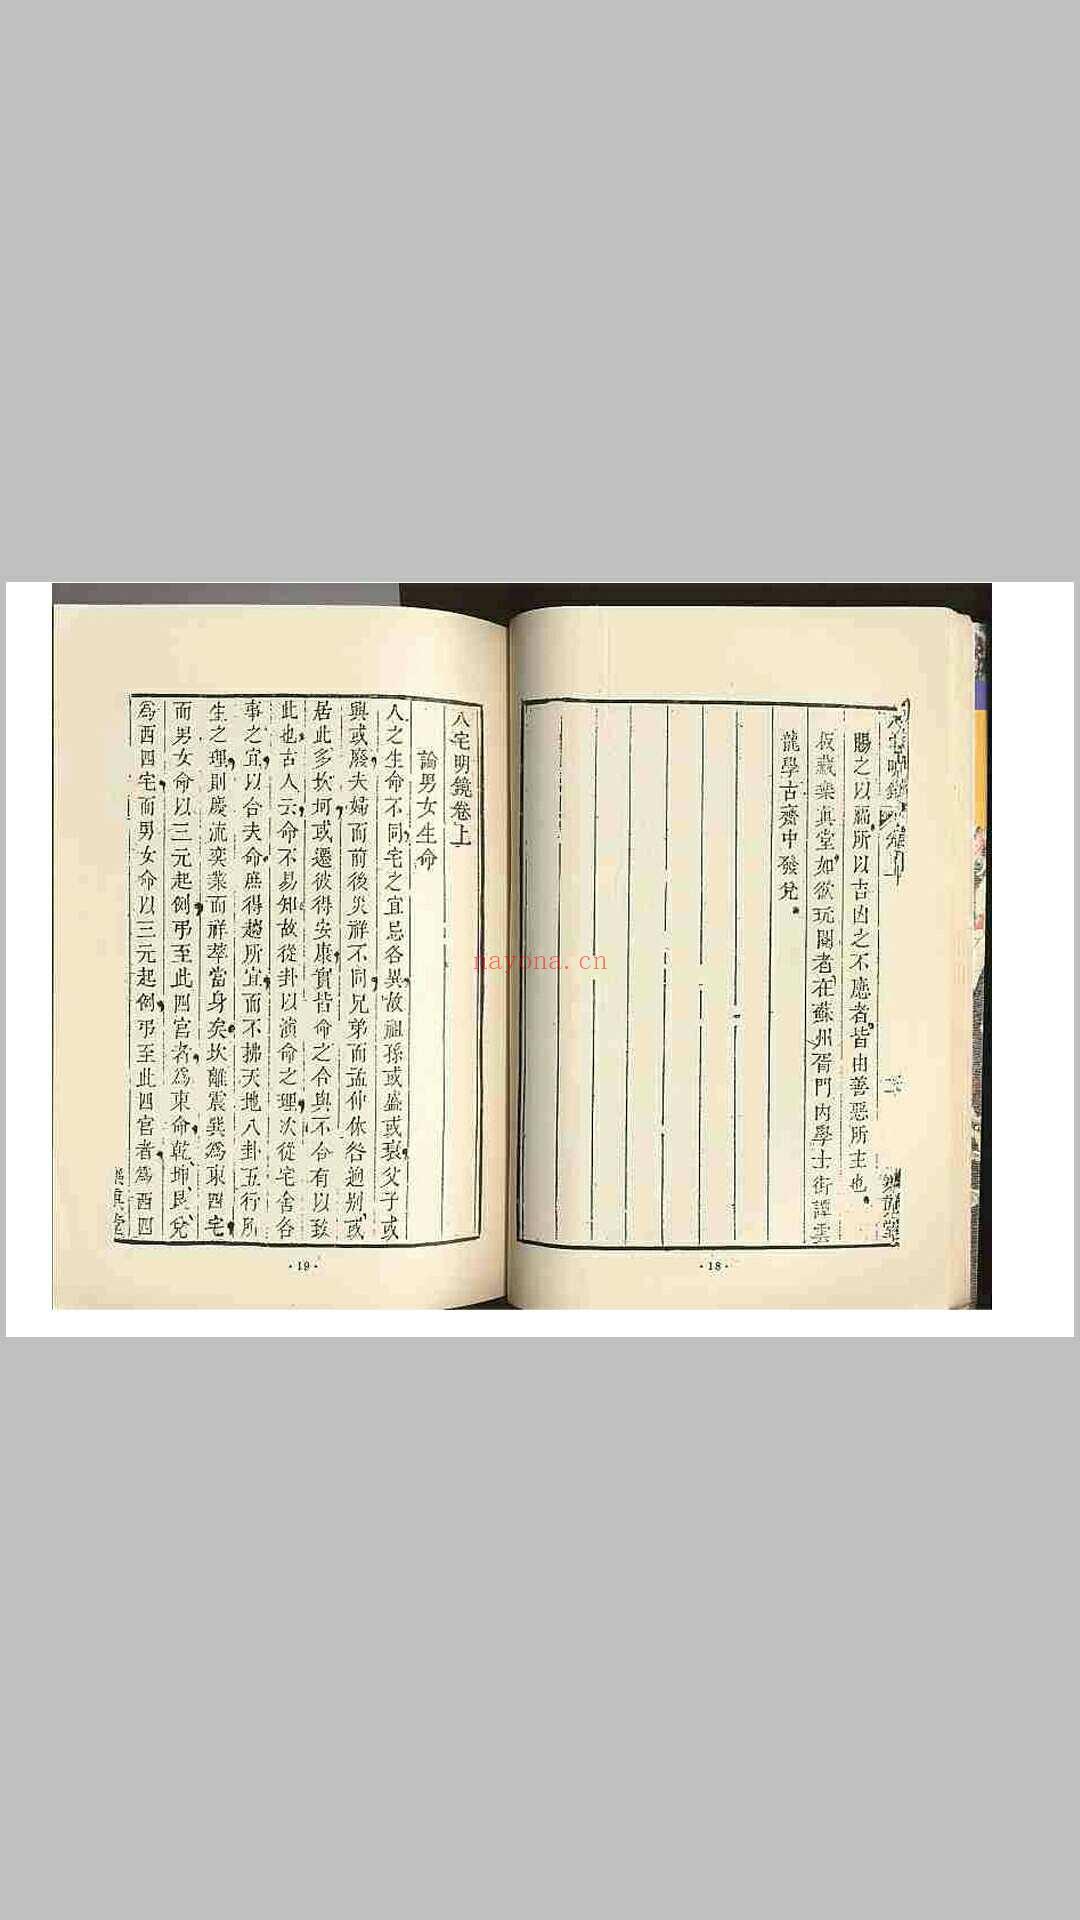 賜之以福所以吉凶之不應者皆由善惡所主也
板藏樂眞堂如欲玩閱者在蘇州胥門內學士街譚雲
龍學古齋中發兌
·18·
八宅明鏡卷上
論男女生命
人之生命不同宅之宜忌各異故祖孫或盛或衰父子或
興或廢夫婦而前後災祥不同兄弟而孟仲休咎逈别或
居此多坎坷或遷彼得安康實皆命之合與不合有以致
此也古人云命不易知故從卦以演命之理次從宅舍各
事之宜以合夫命庶得趨所宜而不拂天地八卦五行所
生之理則慶流奕葉而祥萃當身矣坎離震巽爲東四宅
而男女命以三元起例弔至此四宮者爲東命乾坤艮兌
爲西四宅而男女命以三元起例弔至此四宮者爲西四
樂眞堂
·19·
nayona.cn